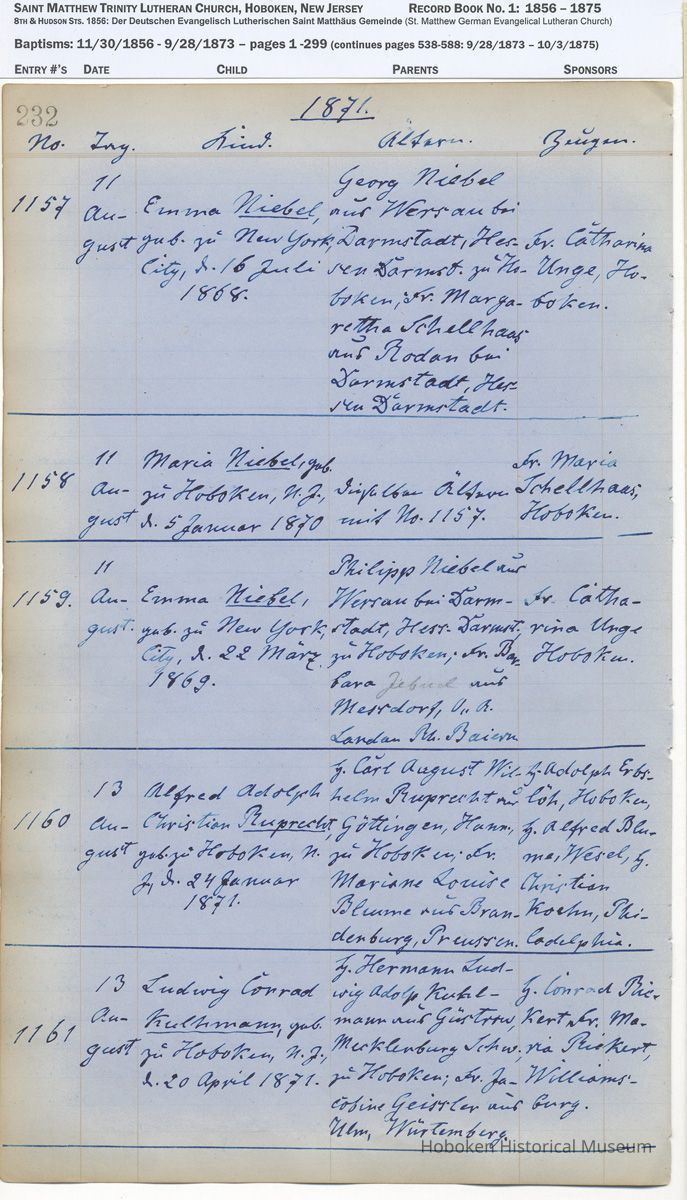 SAINT MATTHEW TRINITY LUTHERAN CHURCH, HOBOKEN, NEW JERSEY RECORD BOOK NO. 1: 1856 – 1875
8TH & HUDSON STS. 1856: Der Deutschen Evangelisch Lutherischen Saint Matthäus Gemeinde (St. Matthew German Evangelical Lutheran Church)
Baptisms: 11/30/1856 - 9/28/1873 – pages 1 -299 (continues pages 538-588: 9/28/1873 – 10/3/1875)
ENTRY #'S DATE CHILD PARENTS SPONSORS
232
1871.
No. Tag. Kind. Ältern. Zeugen.
1157
11
Au-
gust
Emma Niebel,
geb. zu New York
City, d. 16 Juli
1868.
Georg Niebel
aus Wersau bei
Darmstadt, Hes-
sen Darmst. zu Ho-
boken; Fr. Marga-
retha Schellhaas
aus Rodau bei
Darmstadt, Hes-
sen Darmstadt.
Fr. Catharina
Unge, Ho-
boken.
1158
11
Au-
gust
Maria Niebel, geb.
zu Hoboken, N. J.,
d. 5 Januar 1870
Dieselben Ältern
mit No. 1157.
Fr. Maria
Schellhaas,
Hoboken.
1159.
11
Au-
gust.
Emma Niebel,
geb. zu New York
City, d. 22 März
1869.
Philipp Niebel aus
Wersau bei Darm-
stadt, Hess. Darmst.
zu Hoboken; Fr. Bar-
bara aus
Messdorf, O. A.
Landau Rh. Baiern
Fr. Catha-
rina Unge
Hoboken.
1160
13
Au-
gust
Alfred Adolph
Christian Ruprecht,
geb. zu Hoboken, N.
J., d. 24 Januar
1871.
H. Carl August Wil-
helm Ruprecht aus
Göttingen, Hann.,
zu Hoboken; Fr.
Mariane Louise
Blume aus Bran-
denburg, Preussen.
H. Adolph Erbs-
löh, Hoboken,
H. Alfred Blu-
me, Wesel, H.
Christian
Koehn, Phi-
ladelphia.
1161
13
Au-
gust
Ludwig Conrad
Kuhlmann, geb.
zu Hoboken, N. J.,
d. 20 April 1871.
H. Hermann Lud-
wig Adolp Kuhl-
mann aus Güstrow,
Mecklenburg Schw.
zu Hoboken; Fr. Ja-
cobine Geissler aus
Ulm, Würtemberg.
H. Conrad Rie-
kert, Fr. Ma-
ria Riekert,
Williams-
burg.
Hoboken Historical Museum